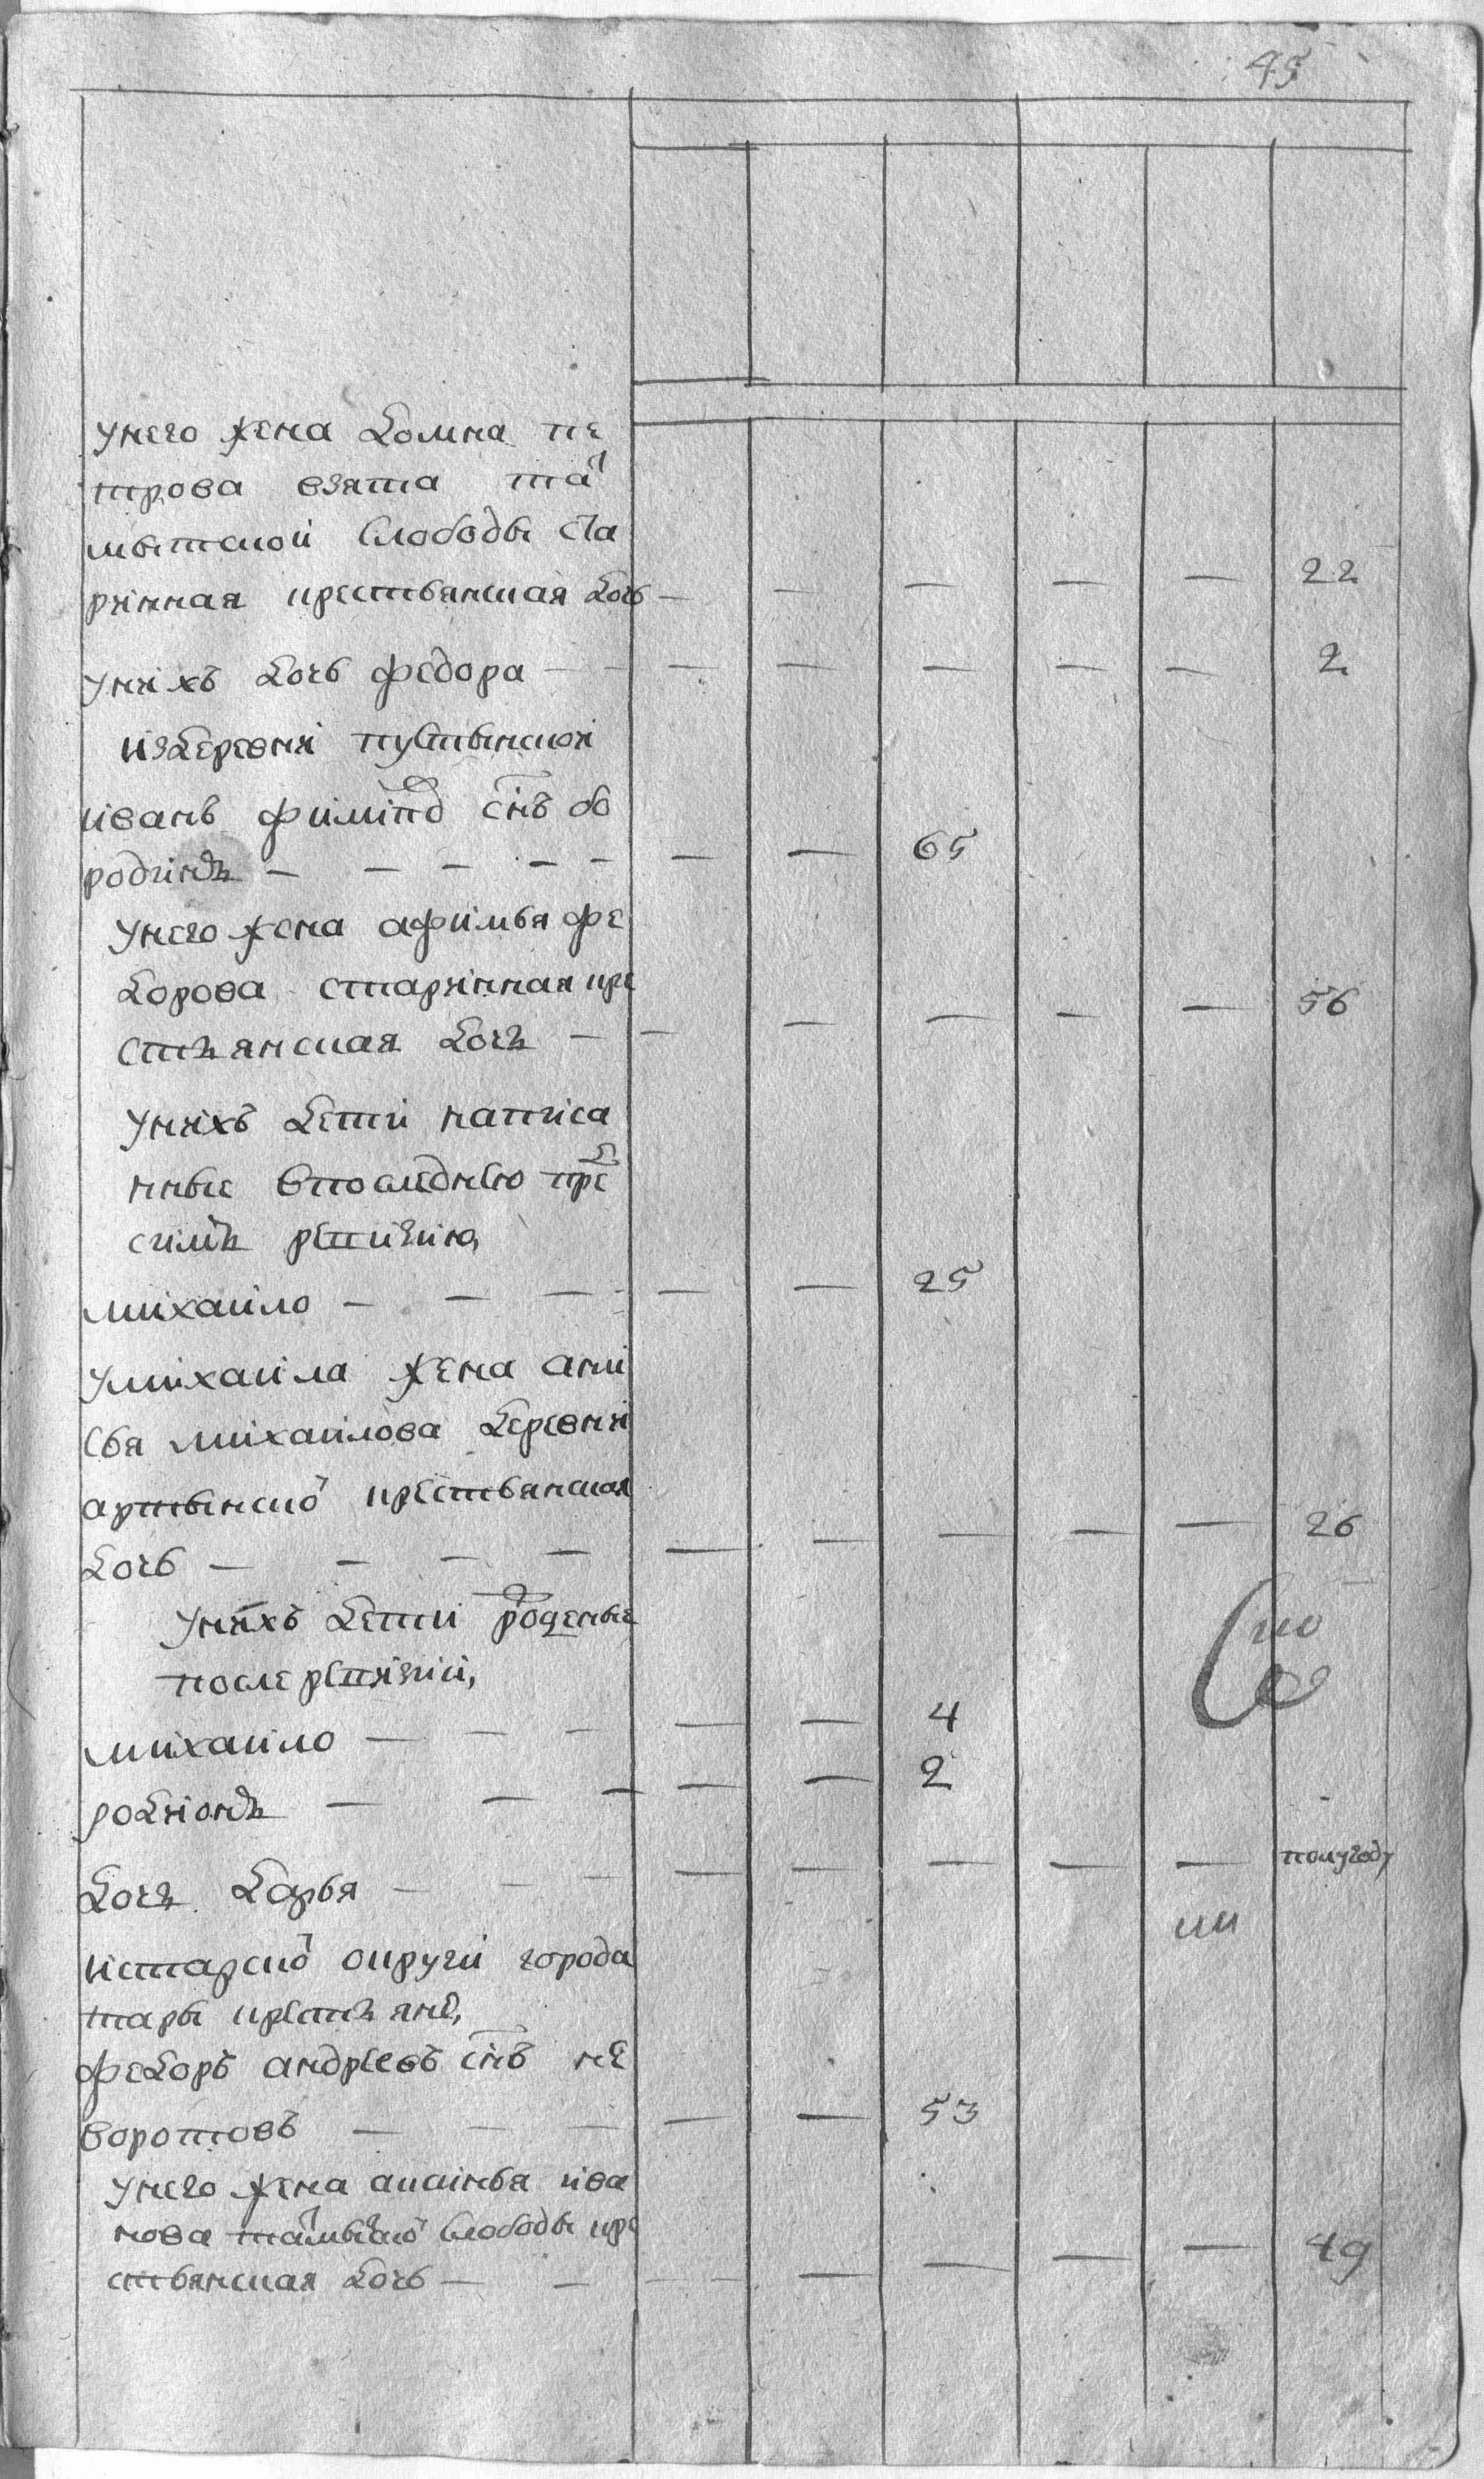 45
унего жена домна пе
трова взята та
мытской слободы ста
ринная крестьянская дочь — — — — — — 22
унихъ дочь федора — — — — — — — 2
издеревни пустынской
иванъ филипо снъ бо
родинъ — — — — — — — 65
унего жена афимья фе
дорова старинная кре
стъянская дочъ — — — — — — 56
унихъ дети написа
нные впоследнюю пре
симъ ревизию,
михаило — — — — — 25
умихаила жена ани
сья михаилова деревни
артынско крестьянская
дочь — — — — — — — — — 26
унихъ дети роженые
после ревизии,
михаило — — — — — 4
родионъ — — — — — 2
дочъ дарья — — — — — — — — полугоду
истарско округи города
тары крестъяне,
федоръ андреевъ снъ не
воротовъ — — — — — 53
унего жена аксинья ива
нова тамыско слободы кре
стьянская дочь — — — — — — — 49